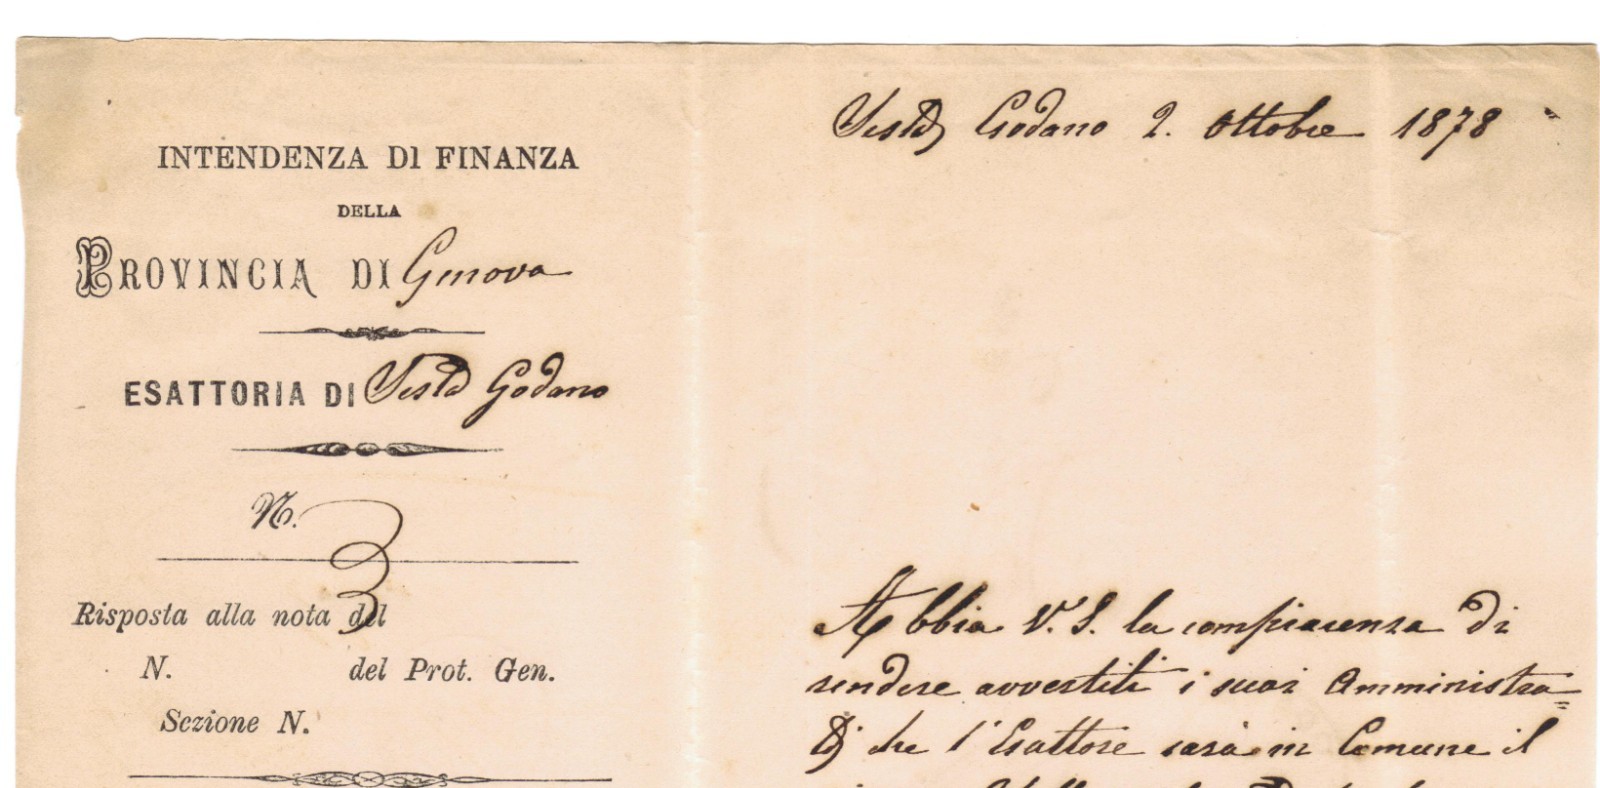 INTENDENZA DI FINANZA
DELLA
PROVINCIA DI Genova
ESATTORIA DI Sesta Godano
N. 3
Risposta alla nota del
N. del Prot. Gen.
Sezione N.
Sesta Godano 2. Ottobre 1878
Abbia V. S. la compiacenza di
rendere avvertiti i suoi Amministra=
ti che l'Esattore sarà in Comune il